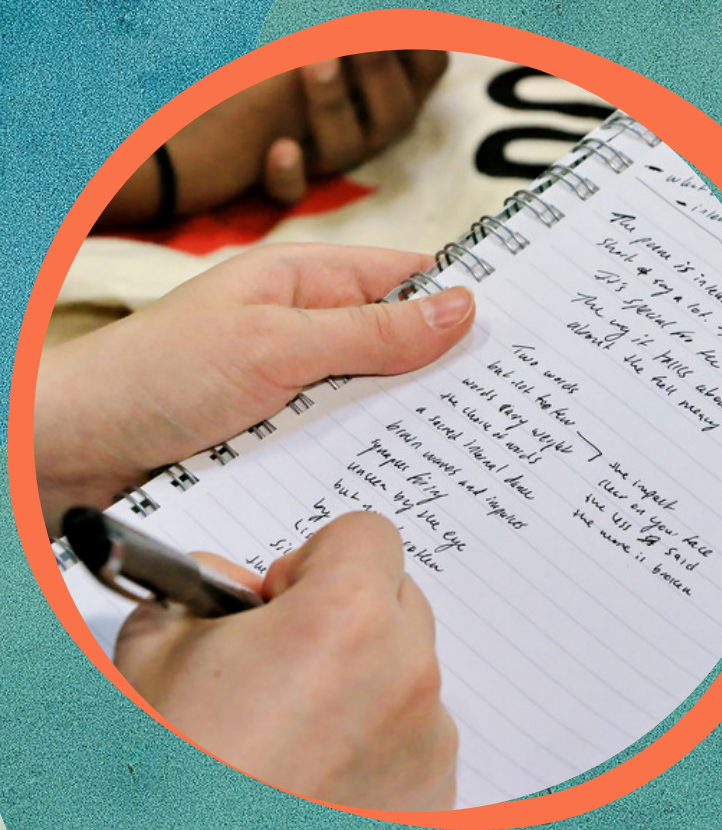 - what
The poem is
short & say a lot.
It's special for the
The way it talks abou
about the full meany
Two words
but not too few
words carry weight
the choice of words
a sacred internal dance
brain waves and impulses
synapses firing
unseen by the eye
but
by
the
the impact
clear on your face
the less is said
the more is broken